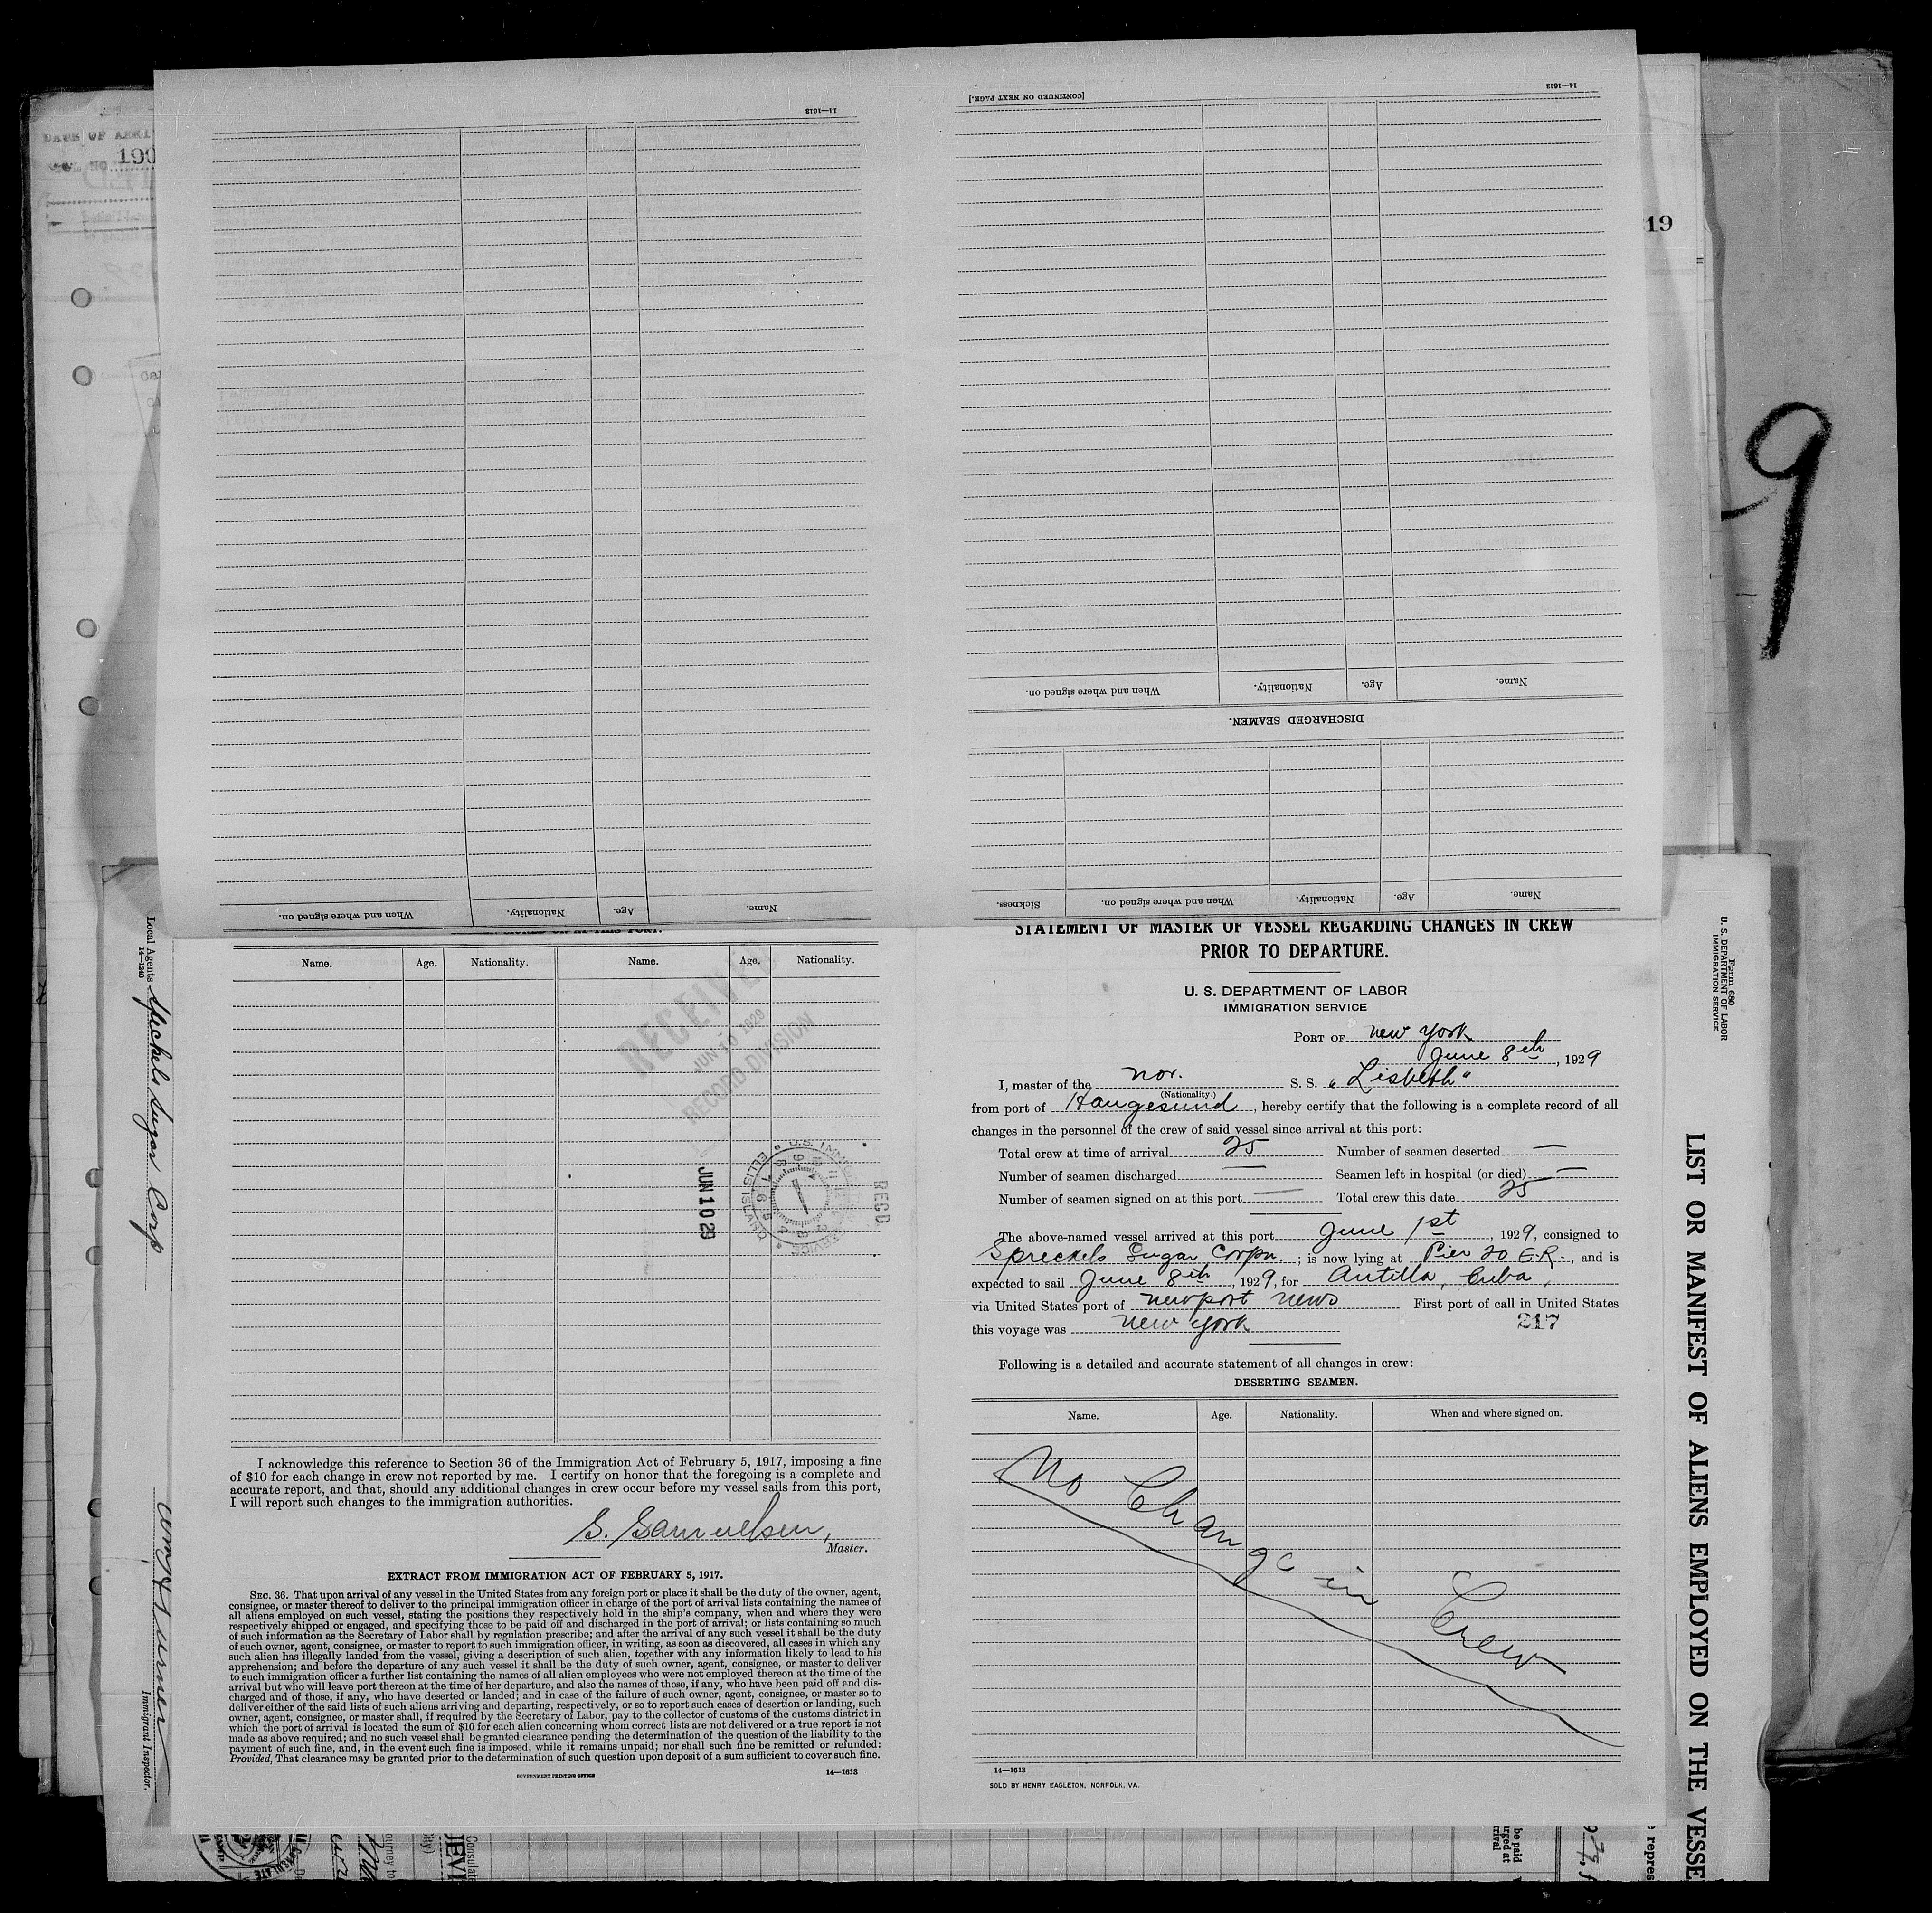 DATE OF ARRI
190
19
9
14—1613
[CONTINUED ON NEXT PAGE.]
14—1613
When and where signed on. Nationality. Age. Name.
DISCHARGED SEAMEN.
Sickness. When and where signed on. Nationality. Age. Name.
When and where signed on. Nationality. Age. Name.
Name. Age. Nationality. Name. Age. Nationality.
RECEIVED
JUN 1929
RECORD DIVISION
JUN 10 29
ELLIS ISLAND
RECD
I acknowledge this reference to Section 36 of the Immigration Act of February 5, 1917, imposing a fine
of $10 for each change in crew not reported by me. I certify on honor that the foregoing is a complete and
accurate report, and that, should any additional changes in crew occur before my vessel sails from this port,
I will report such changes to the immigration authorities.
S. Samuelsen,
Master.
EXTRACT FROM IMMIGRATION ACT OF FEBRUARY 5, 1917.
SEC. 36. That upon arrival of any vessel in the United States from any foreign port or place it shall be the duty of the owner, agent,
consignee, or master thereof to deliver to the principal immigration officer in charge of the port of arrival lists containing the names of
all aliens employed on such vessel, stating the positions they respectively hold in the ship's company, when and where they were
respectively shipped or engaged, and specifying those to be paid off and discharged in the port of arrival; or lists containing so much
of such information as the Secretary of Labor shall by regulation prescribe; and after the arrival of any such vessel it shall be the duty
of such owner, agent, consignee, or master to report to such immigration officer, in writing, as soon as discovered, all cases in which any
such alien has illegally landed from the vessel, giving a description of such alien, together with any information likely to lead to his
apprehension; and before the departure of any such vessel it shall be the duty of such owner, agent, consignee, or master to deliver
to such immigration officer a further list containing the names of all alien employees who were not employed thereon at the time of the
arrival but who will leave port thereon at the time of her departure, and also the names of those, if any, who have been paid off and dis-
charged and of those, if any, who have deserted or landed; and in case of the failure of such owner, agent, consignee, or master so to
deliver either of the said lists of such aliens arriving and departing, respectively, or so to report such cases of desertion or landing, such
owner, agent, consignee, or master shall, if required by the Secretary of Labor, pay to the collector of customs of the customs district in
which the port of arrival is located the sum of $10 for each alien concerning whom correct lists are not delivered or a true report is not
made as above required; and no such vessel shall be granted clearance pending the determination of the question of the liability to the
payment of such fine, and, in the event such fine is imposed, while it remains unpaid; nor shall such fine be remitted or refunded:
Provided, That clearance may be granted prior to the determination of such question upon deposit of a sum sufficient to cover such fine.
GOVERNMENT PRINTING OFFICE
14—1613
STATEMENT OF MASTER OF VESSEL REGARDING CHANGES IN CREW
PRIOR TO DEPARTURE.
U. S. DEPARTMENT OF LABOR
IMMIGRATION SERVICE
PORT OF New York
June 8th, 1929
I, master of the Nor. S. S. "Lisbeth"
(Nationality.)
from port of Haugesund, hereby certify that the following is a complete record of all
changes in the personnel of the crew of said vessel since arrival at this port:
Total crew at time of arrival 25 Number of seamen deserted —
Number of seamen discharged — Seamen left in hospital (or died) —
Number of seamen signed on at this port — Total crew this date 25
The above-named vessel arrived at this port June 1st, 1929, consigned to
Spreckels Sugar Corpn.; is now lying at Pier 20 E.R., and is
expected to sail June 8th, 1929, for Antilla, Cuba,
via United States port of Newport News First port of call in United States
this voyage was New York
217
Following is a detailed and accurate statement of all changes in crew:
DESERTING SEAMEN.
Name. Age. Nationality. When and where signed on.
No Change in Crew
14—1613
SOLD BY HENRY EAGLETON, NORFOLK, VA.
Local Agents Spreckels Sugar Corp
14—1240
Immigrant Inspector.
Form 680
U. S. DEPARTMENT OF LABOR
IMMIGRATION SERVICE
LIST OR MANIFEST OF ALIENS EMPLOYED ON THE VESSE